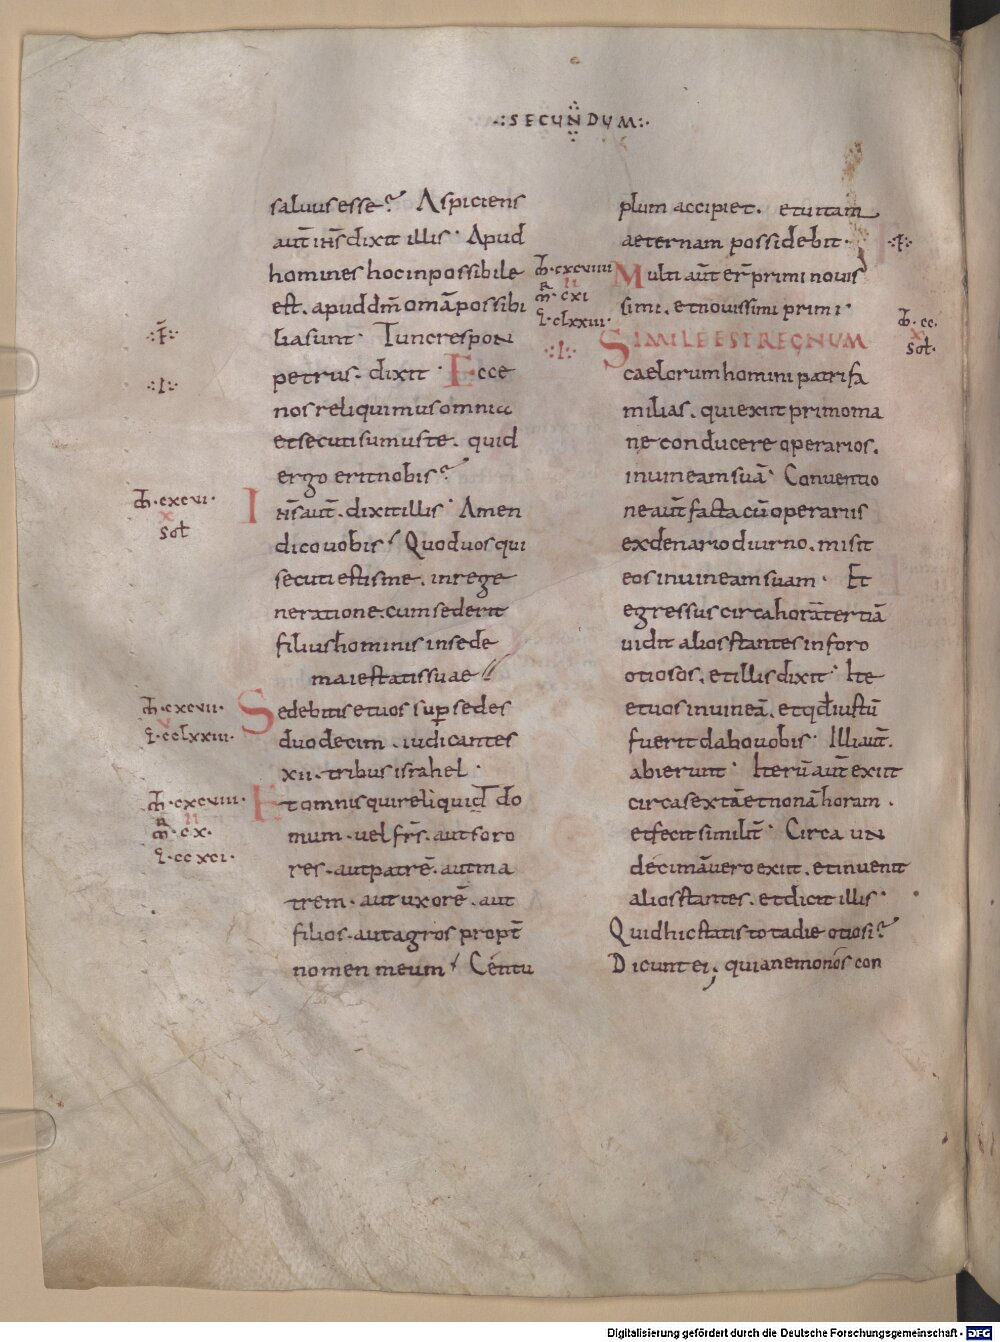 ·:SECUNDUM:·
saluus esse? Aspiciens
aut̄ ih̄s dixit illis· Apud
homines hoc inpossibile
est. apud dm̄ om̄a possibi
lia sunt· Tunc respon
·:F̄:·
petrus· dixit· Ecce
·:I·:
nos reliquimus omnia
et secuti sumus te. quid
ergo erit nobis?
m̄t·cxcvi·
x
sol
Ih̄s aut̄· dixit illis· Amen
dico uobis· Quod uos qui
secuti estis me. in rege
neratione. cum sederit
filius hominis in sede
maiestatis suae
m̄t·cxcvii·
v
l·cclxxiii·
Sedebitis et uos sup̱ sedes
duodecim· iudicantes
xii· tribus israhel·
m̄t·cxcviii·
ii
m̄r·cx·
l·ccxci·
Et omnis qui reliquid do
mum· uel fr̄s· aut soro
res· aut patrē· aut ma
trem· aut uxorē· aut
filios· aut agros propt̄
nomen meum· Centu
plum accipiet· et uitam
aeternam possidebit·
·:F·:
m̄t·cxcviiii
ii
m̄r·cxi
l·clxxiii·
·:I·:
Multi aut̄ er̄ primi nouis
simi. et nouissimi primi·
SIMILE EST REGNUM
m̄t·cc·
x
sol·
caelorum homini patri fa
milias. qui exiit primo ma
ne conducere operarios.
in uineam suā· Conuentio
ne aut̄ facta cū operariis
ex denario diurno. misit
eos in uineam suam· Et
egressus circa horā tertiā
uidit alios stantes in foro
otiosos. et illis dixit· Ite
et uos in uineā. et qđ iustū
fuerit dabo uobis· Illi aut̄.
abierunt· Iterū aut̄ exiit
circa sextā et nonā horam·
et fecit similit̄· Circa un
decimā uero exiit. et inuenit
alios stantes. et dicit illis·
Quid hic statis tota die otiosi?
Dicunt ei; quia nemo nos con
Digitalisierung gefördert durch die Deutsche Forschungsgemeinschaft - DFG